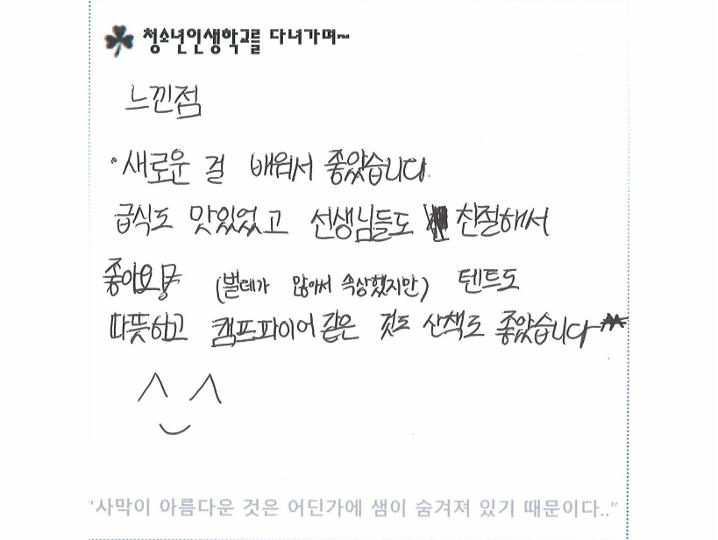 청소년인생학교를 다녀가며~
느낀점
· 새로운 걸 배워서 좋았습니다.
급식도 맛있었고 선생님들도 친절해서
좋아요 (벌레가 많아서 속상했지만) 텐트도
따뜻하고 캠프파이어 같은 것도 산책도 좋았습니다 ^^
"사막이 아름다운 것은 어딘가에 샘이 숨겨져 있기 때문이다.."